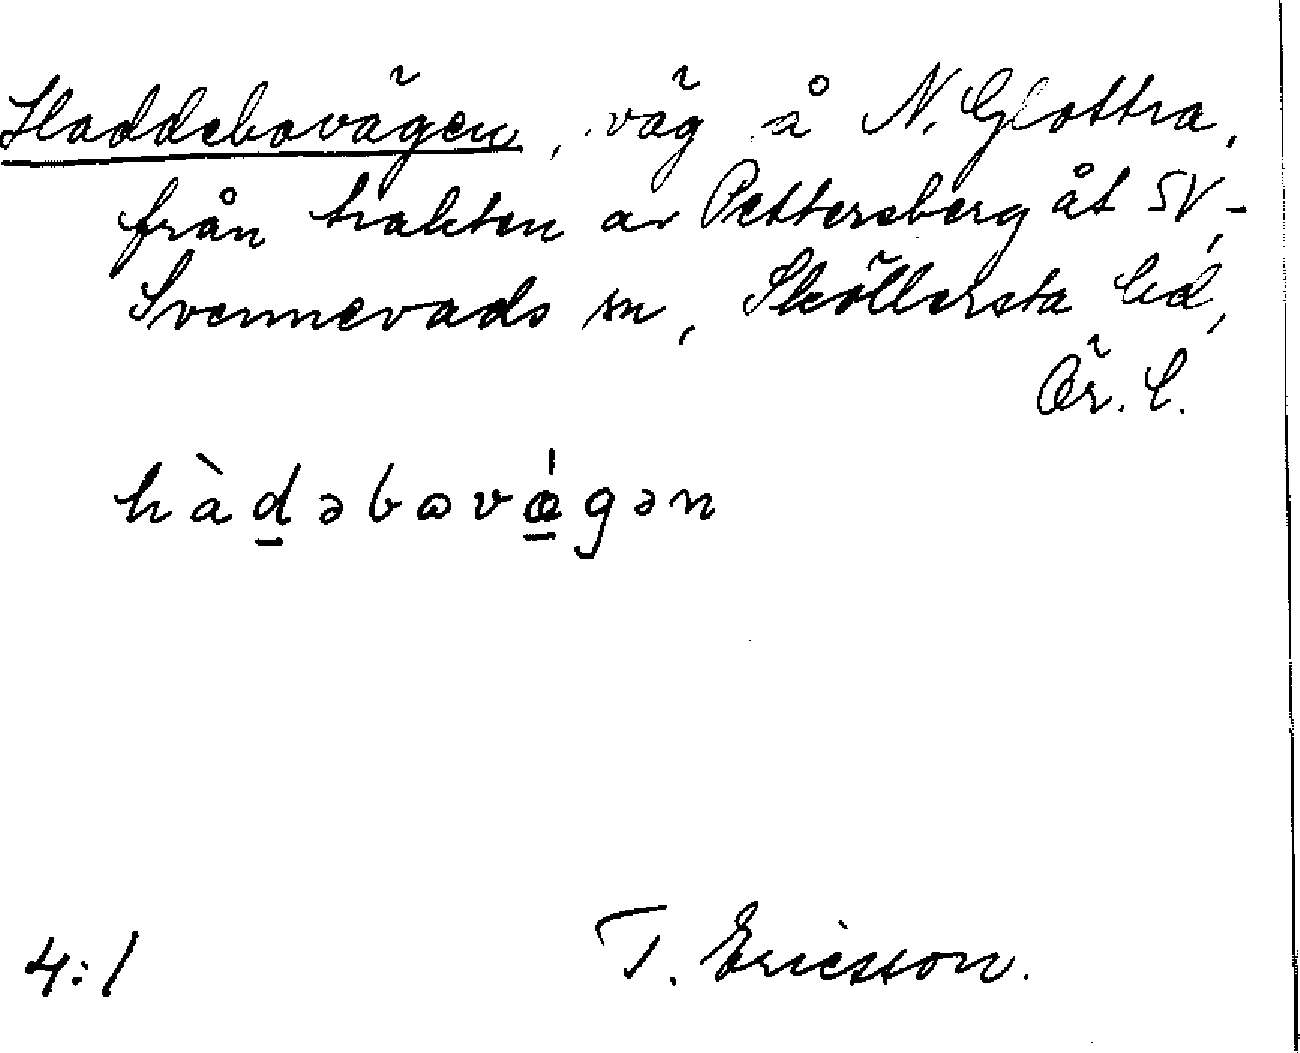 Haddebovägen, väg å N. Glottra,
från trakten av Pettersberg åt SV, -
Svennevads sn, Sköllersta hd,
Ör. l.
hàd̲əbovǽ̲gən
4:1
T. Ericsson.